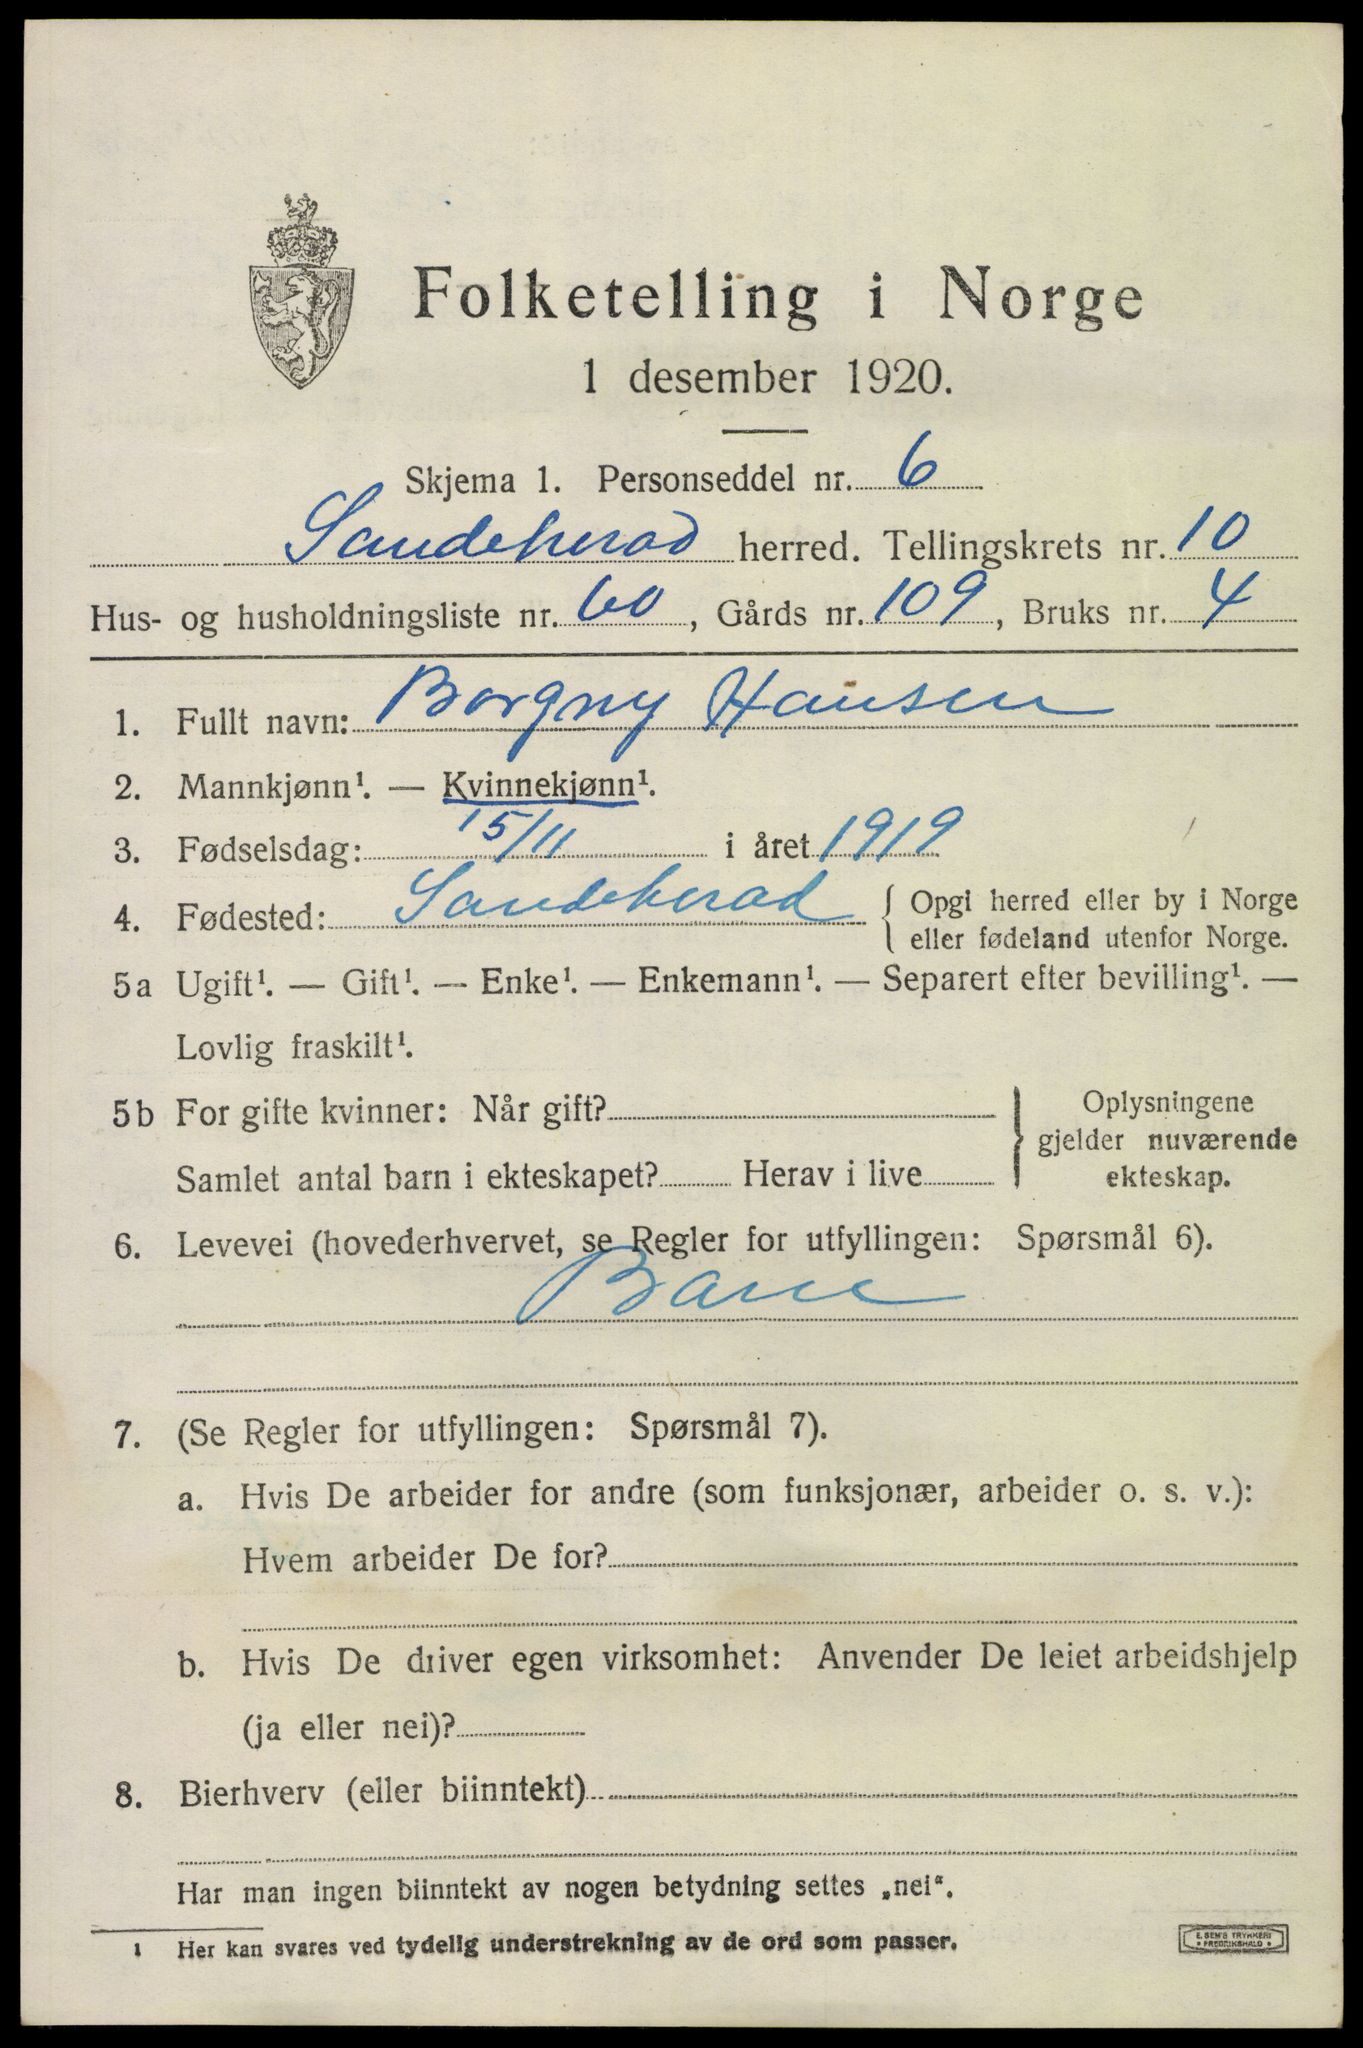 Folketelling i Norge
1 desember 1920.
Skjema 1. Personseddel nr. 6
Sandeherad herred. Tellingskrets nr. 10
Hus- og husholdningsliste nr. 60, Gårds nr. 109, Bruks nr. 4
1. Fullt navn: Borgny Hansen
2. Mannkjønn¹. — Kvinnekjønn¹.
3. Fødselsdag: 15/11 i året 1919
4. Fødested: Sandeherad { Opgi herred eller by i Norge
eller fødeland utenfor Norge.
5a Ugift¹. — Gift¹. — Enke¹. — Enkemann¹. — Separert efter bevilling¹. —
Lovlig fraskilt¹.
5b For gifte kvinner: Når gift?
Samlet antal barn i ekteskapet? Herav i live
} Oplysningene
gjelder nuværende
ekteskap.
6. Levevei (hovederhvervet, se Regler for utfyllingen: Spørsmål 6).
Barn
7. (Se Regler for utfyllingen: Spørsmål 7).
a. Hvis De arbeider for andre (som funksjonær, arbeider o. s. v.):
Hvem arbeider De for?
b. Hvis De driver egen virksomhet: Anvender De leiet arbeidshjelp
(ja eller nei)?
8. Bierhverv (eller biinntekt)
Har man ingen biinntekt av nogen betydning settes „nei“.
¹ Her kan svares ved tydelig understrekning av de ord som passer.
E. SEM'S TRYKKERI
• FREDRIKSHALD •